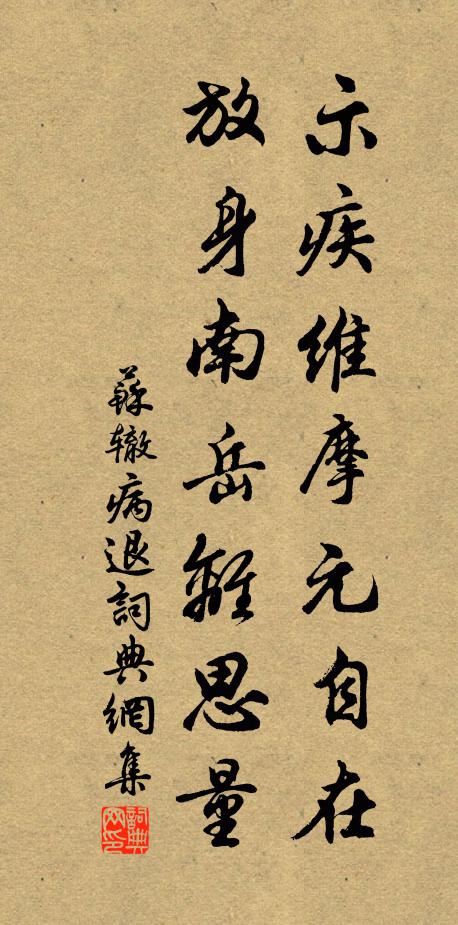 示疾維摩元自在
放身南岳離思量
蘇轍病退詞典網集
詞典网印